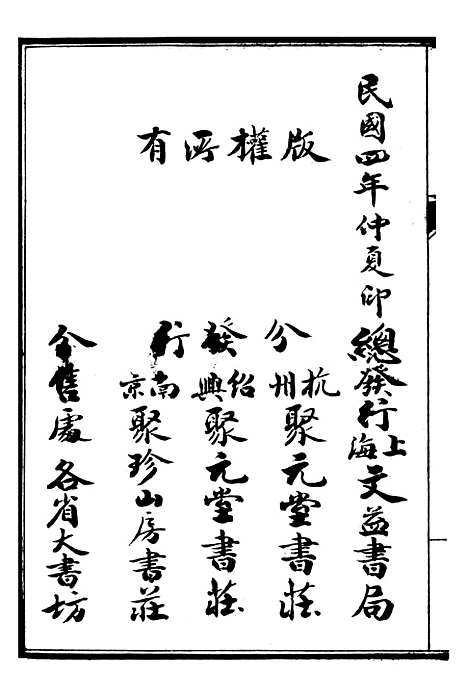 民國四年仲夏印
版權所有
總發行上海文益書局
分杭州聚元堂書莊
發紹興聚元堂書莊
行南京聚珍山房書莊
分售處各省大書坊